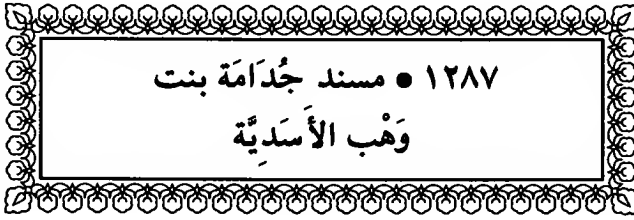 ١٢٨٧ ● مسند جُدَامَة بنت
وَهْب الأَسَدِيَّة